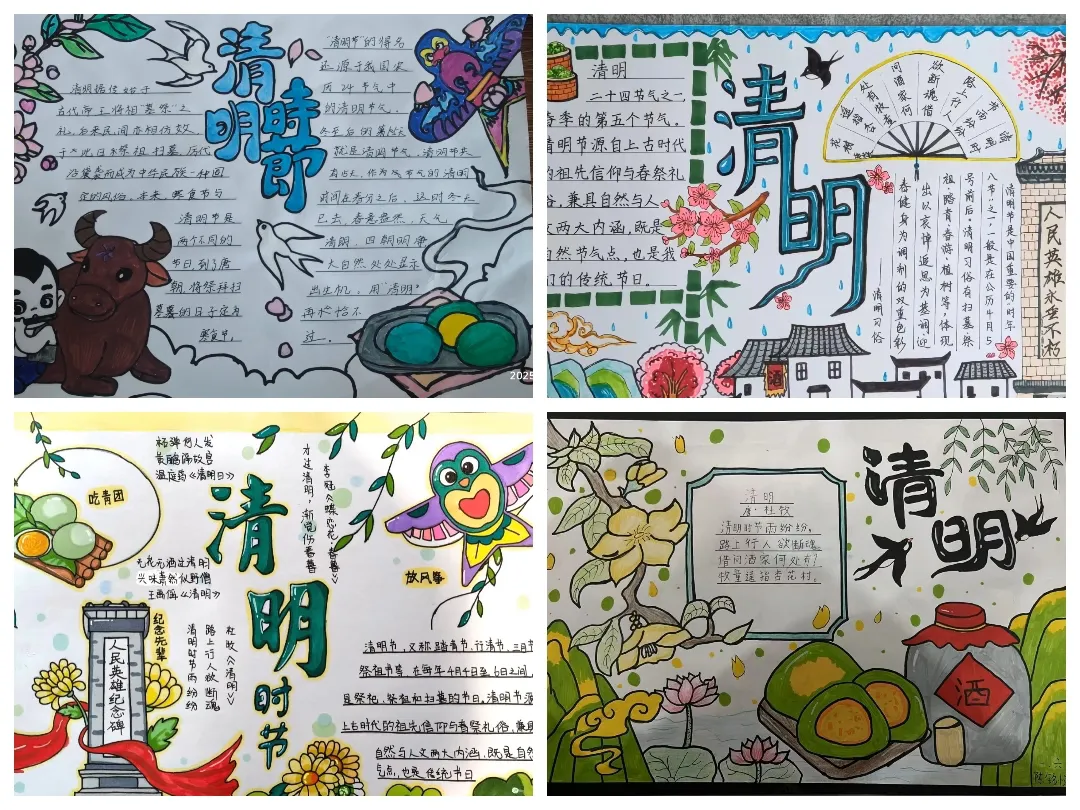 清明
時節
清明据传始于
古代帝王将相"墓祭"之
礼,后来民间亦相仿效,
于此日祭祖扫墓,历代
沿袭而成为中华民族一种固
定的风俗。本来,寒食节与
清明节是
两个不同的
节日,到了唐
朝,将祭拜扫
墓的日子定为
寒食节。
"清明节"的得名
还源于我国农
历24节气中
的清明节气。
就是清明节气,清明节共
大自然处处显示
出生机,用"清明"
过。
2025
清明
二十四节气之一,
春季的第五个节气。
清明节源自上古时代
的祖先信仰与春祭礼
俗,兼具自然与人
文两大内涵,既是
自然节气点,也是我
们的传统节日。
清明
清明时
节雨纷
路上行人
欲断魂借
问酒家何
处有牧童
酒
清明节是中国重要的"时年
八节"之一,一般是在公历4月5
号前后。清明习俗有扫墓·祭
祖·踏青春游·植树等,体现
出以哀悼追思为基调迎
春健身为调剂的双重色彩
——清明习俗
人民英雄永垂不朽
杨婵有人发
黄鹂飞故宫
温庭筠《清明日》
吃青团
无花无酒过清明
兴味萧然似野僧
王禹偁《清明》
才过清明,渐觉伤春暮
李冠《蝶恋花·春暮》
清
明
时
节
放风筝
纪念先辈
人民英雄纪念碑
杜牧《清明》
路上行人欲断魂
清明时节雨纷纷
清明节,又称踏青节、行清节、三月节
祭祖节等,在每年4月4日至6日之间
是祭祀、祭祖和扫墓的节日。清明节源
上古时代的祖先信仰与春祭礼俗,兼具
自然与人文两大内涵,既是自然
气点,也是传统节日
清明
清明
唐·杜牧
清明时节雨纷纷,
路上行人欲断魂。
借问酒家何处有?
牧童遥指杏花村。
酒